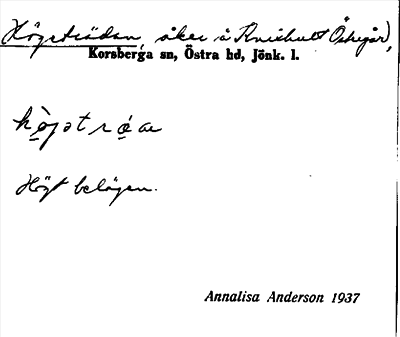 Högstrådan, åker å Knishult Östregård,
Korsberga sn, Östra hd, Jönk. l.
hògstróa
Högt belägen.
Annalisa Anderson 1937